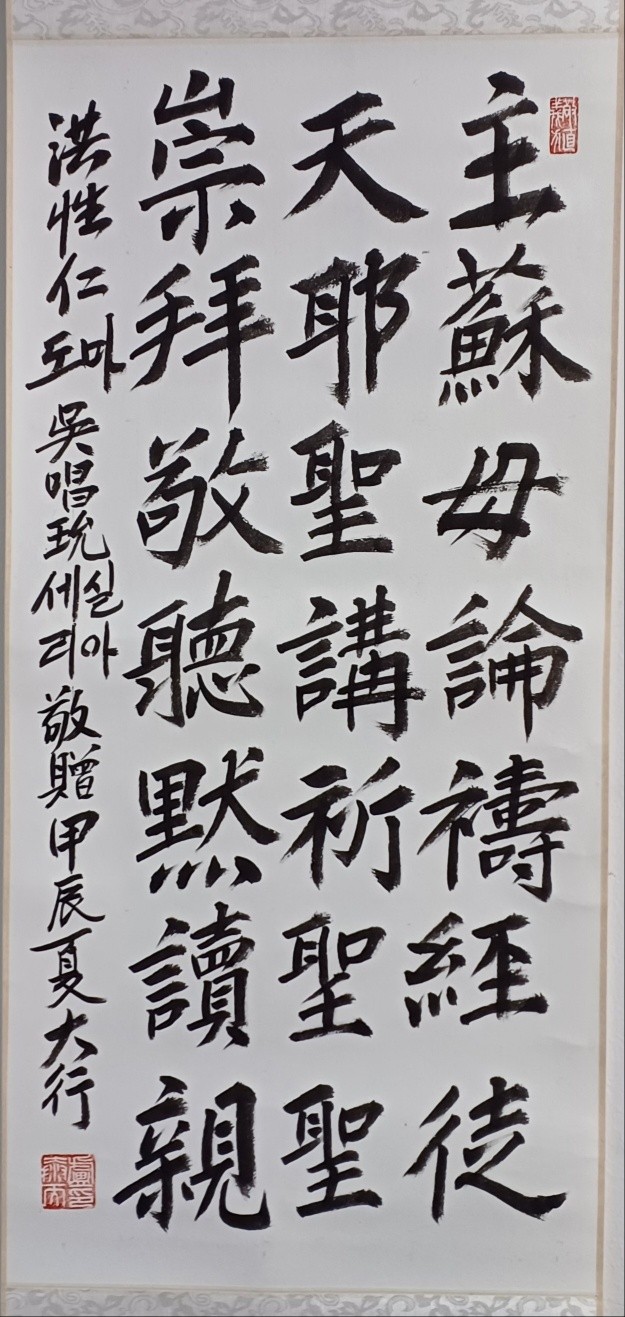 崇天主
拜耶蘇
敬聖母
聽講論
默祈禱
讀聖經
親聖徒
洪性仁 도마 吳唱玧 세실리아 敬贈 甲辰夏 大行